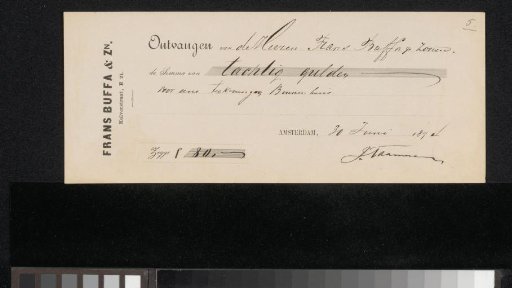 5
FRANS BUFFA & ZN.
Kalverstraat, E 21.
Ontvangen van de Heeren Frans Buffa & Zonen
de Somma van tachtig gulden
voor een tekening
AMSTERDAM, 20 Juni 189
Zegge f 80,-